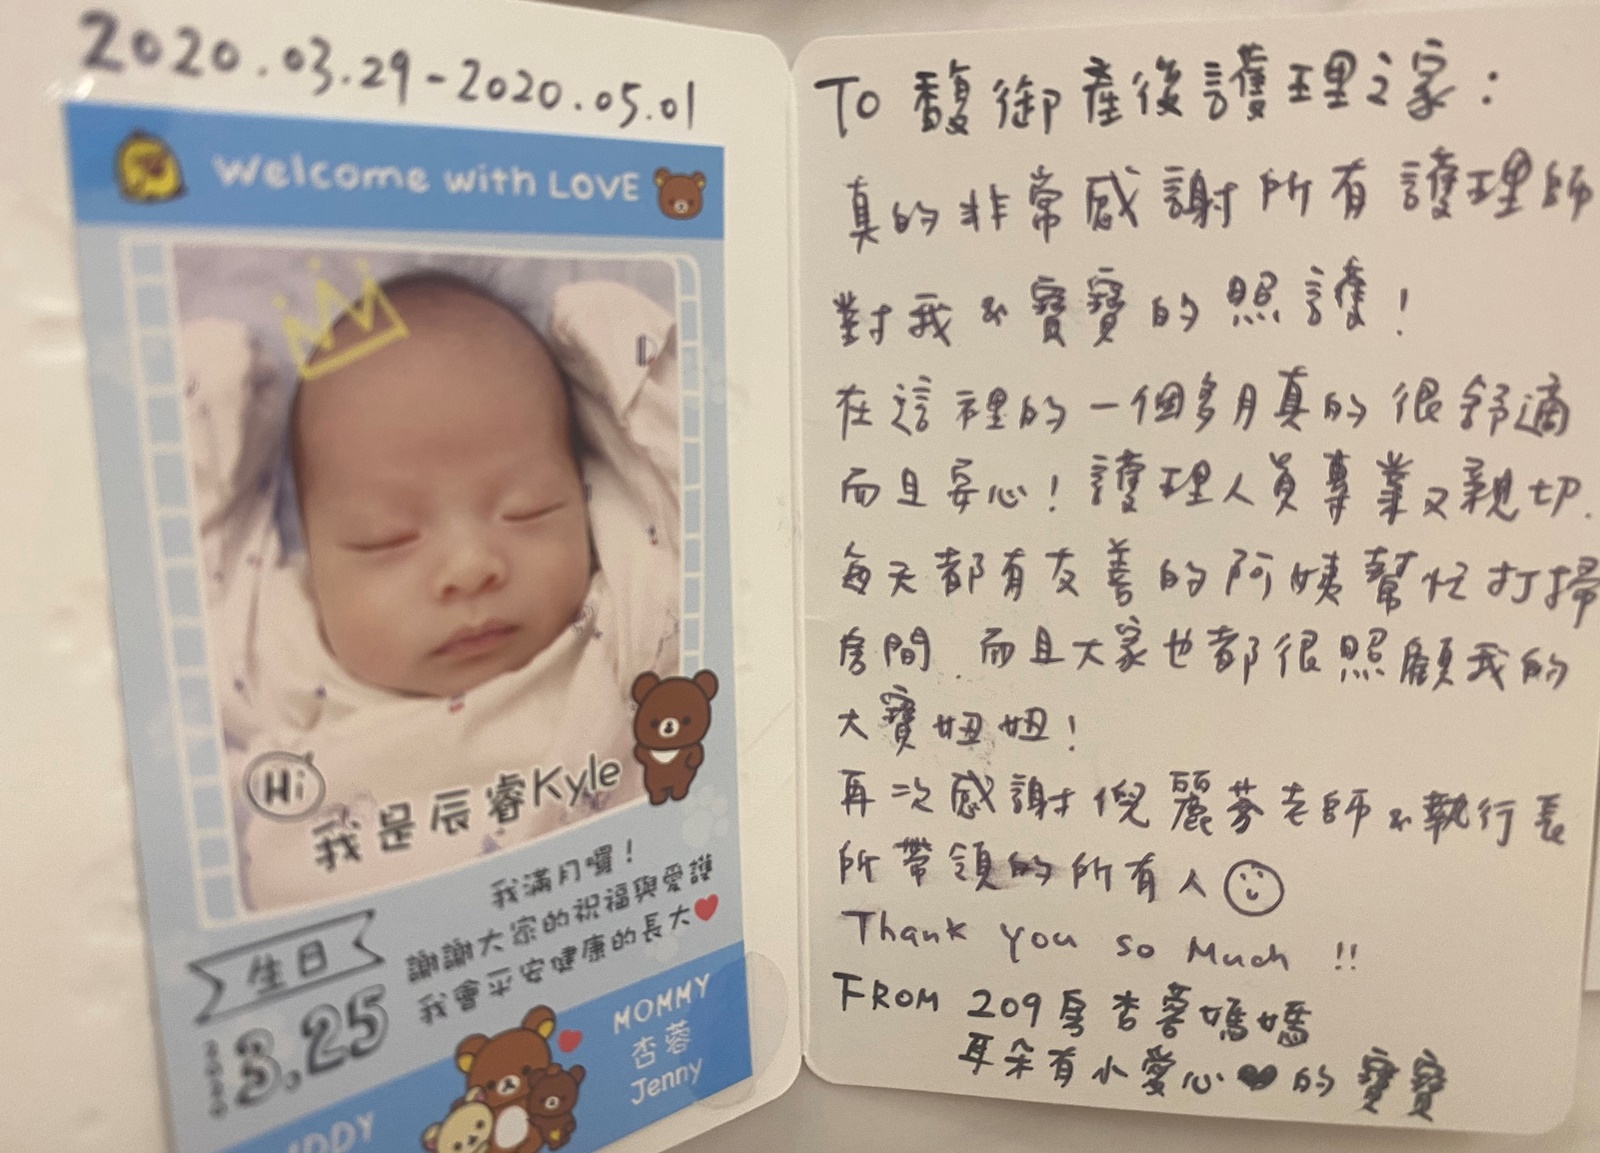 2020.03.29-2020.05.01
Welcome with LOVE
Hi
我是辰睿Kyle
我滿月囉！
謝謝大家的祝福與愛護
我會平安健康的長大
生日
2020
3.25
MOMMY
杏蓉
Jenny
TO 馥御產後護理之家：
真的非常感謝所有護理師
對我&寶寶的照護！
在這裡的一個多月真的很舒適
而且安心！護理人員專業又親切.
每天都有友善的阿姨幫忙打掃
房間.而且大家也都很照顧我的
大寶妞妞！
再次感謝倪麗芬老師&執行長
所帶領的所有人
Thank you so Much !!
FROM 209房杏蓉媽媽
耳朵有小愛心♥的寶寶